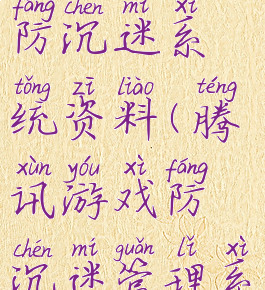 fáng chén mí xì
防沉迷系
tǒng zī liào téng
统资料(腾
xùn yóu xì fáng
讯游戏防
chén mí guǎn lǐ xì
沉迷管理系